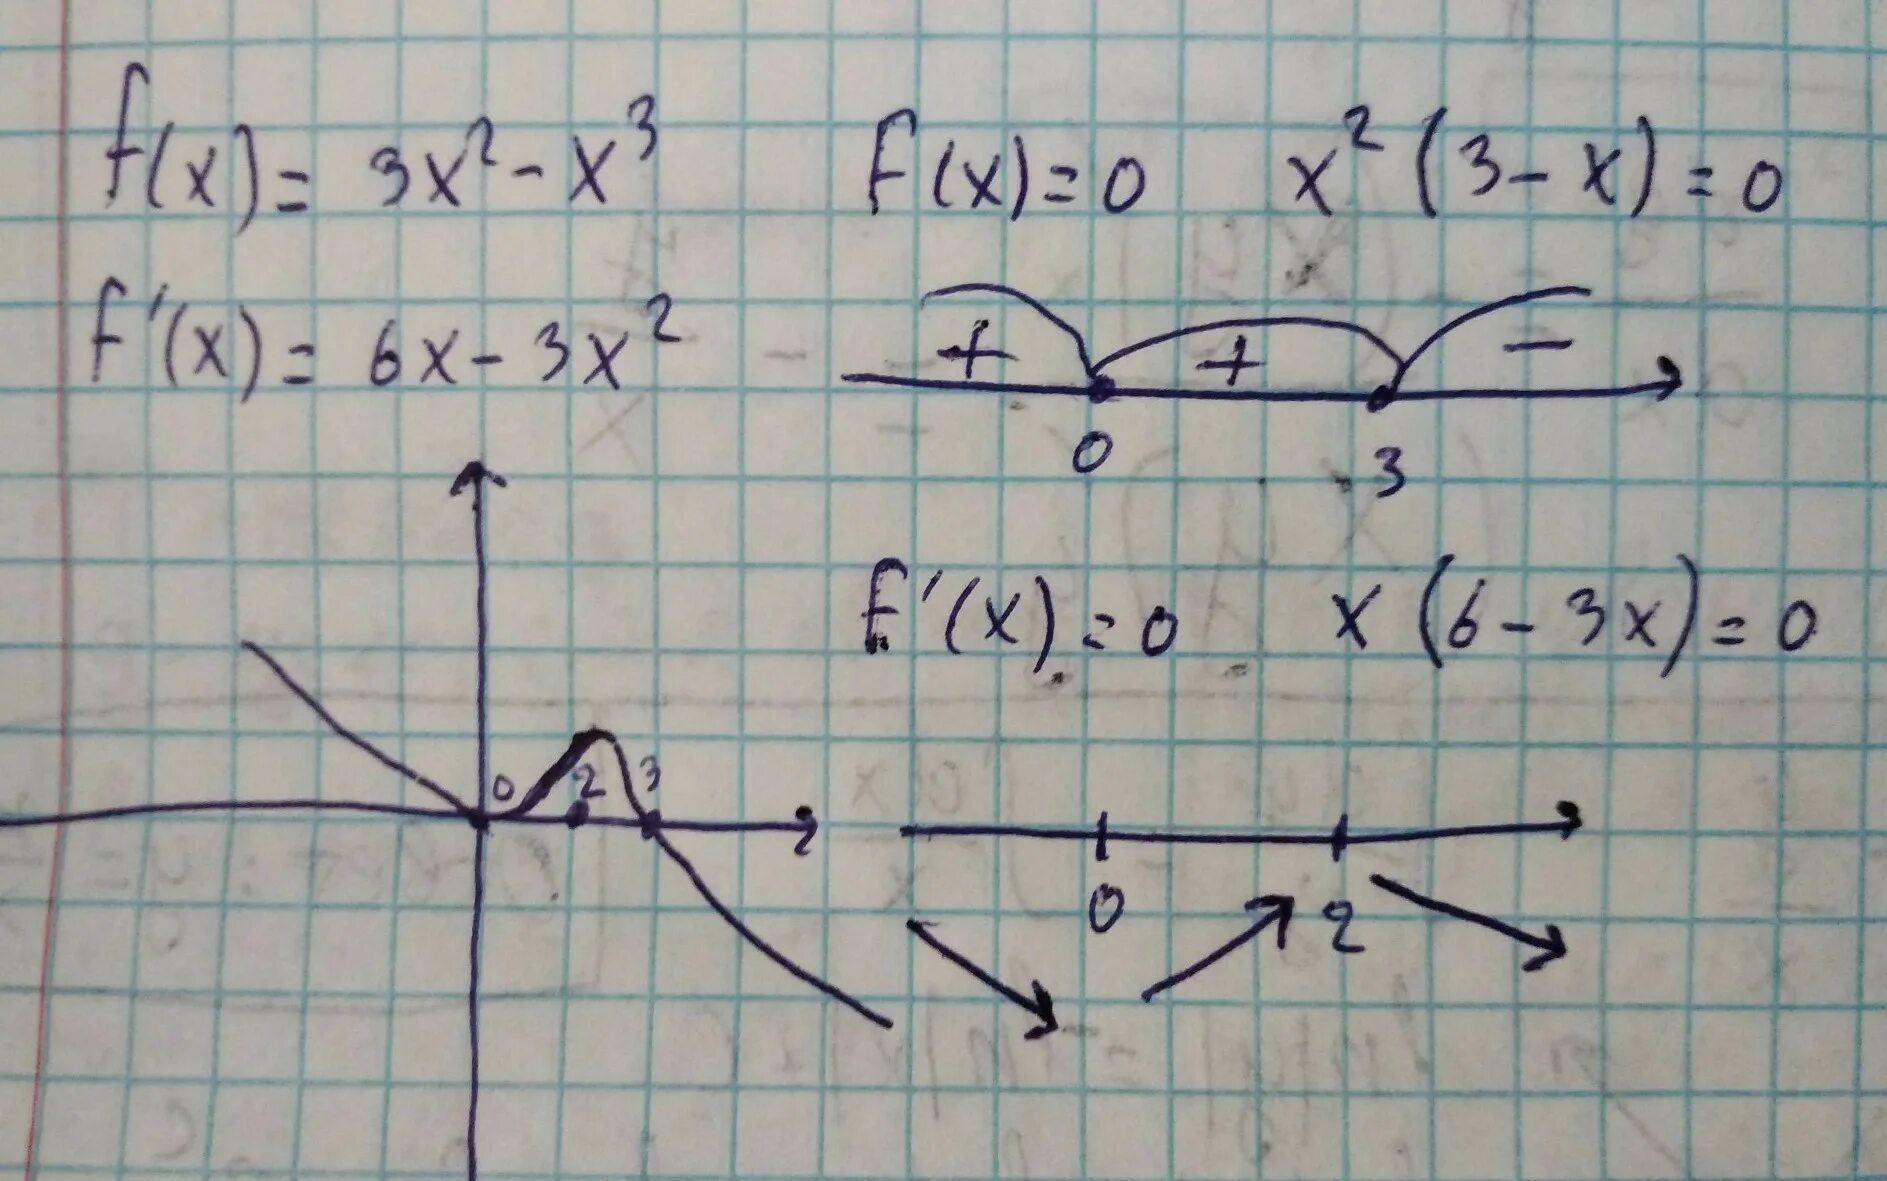 f(x) = 3x² - x³
f(x) = 0 x² (3 - x) = 0
f'(x) = 6x - 3x²
+ + -
0 3
f'(x) = 0 x (6 - 3x) = 0
0 2 3
0 2